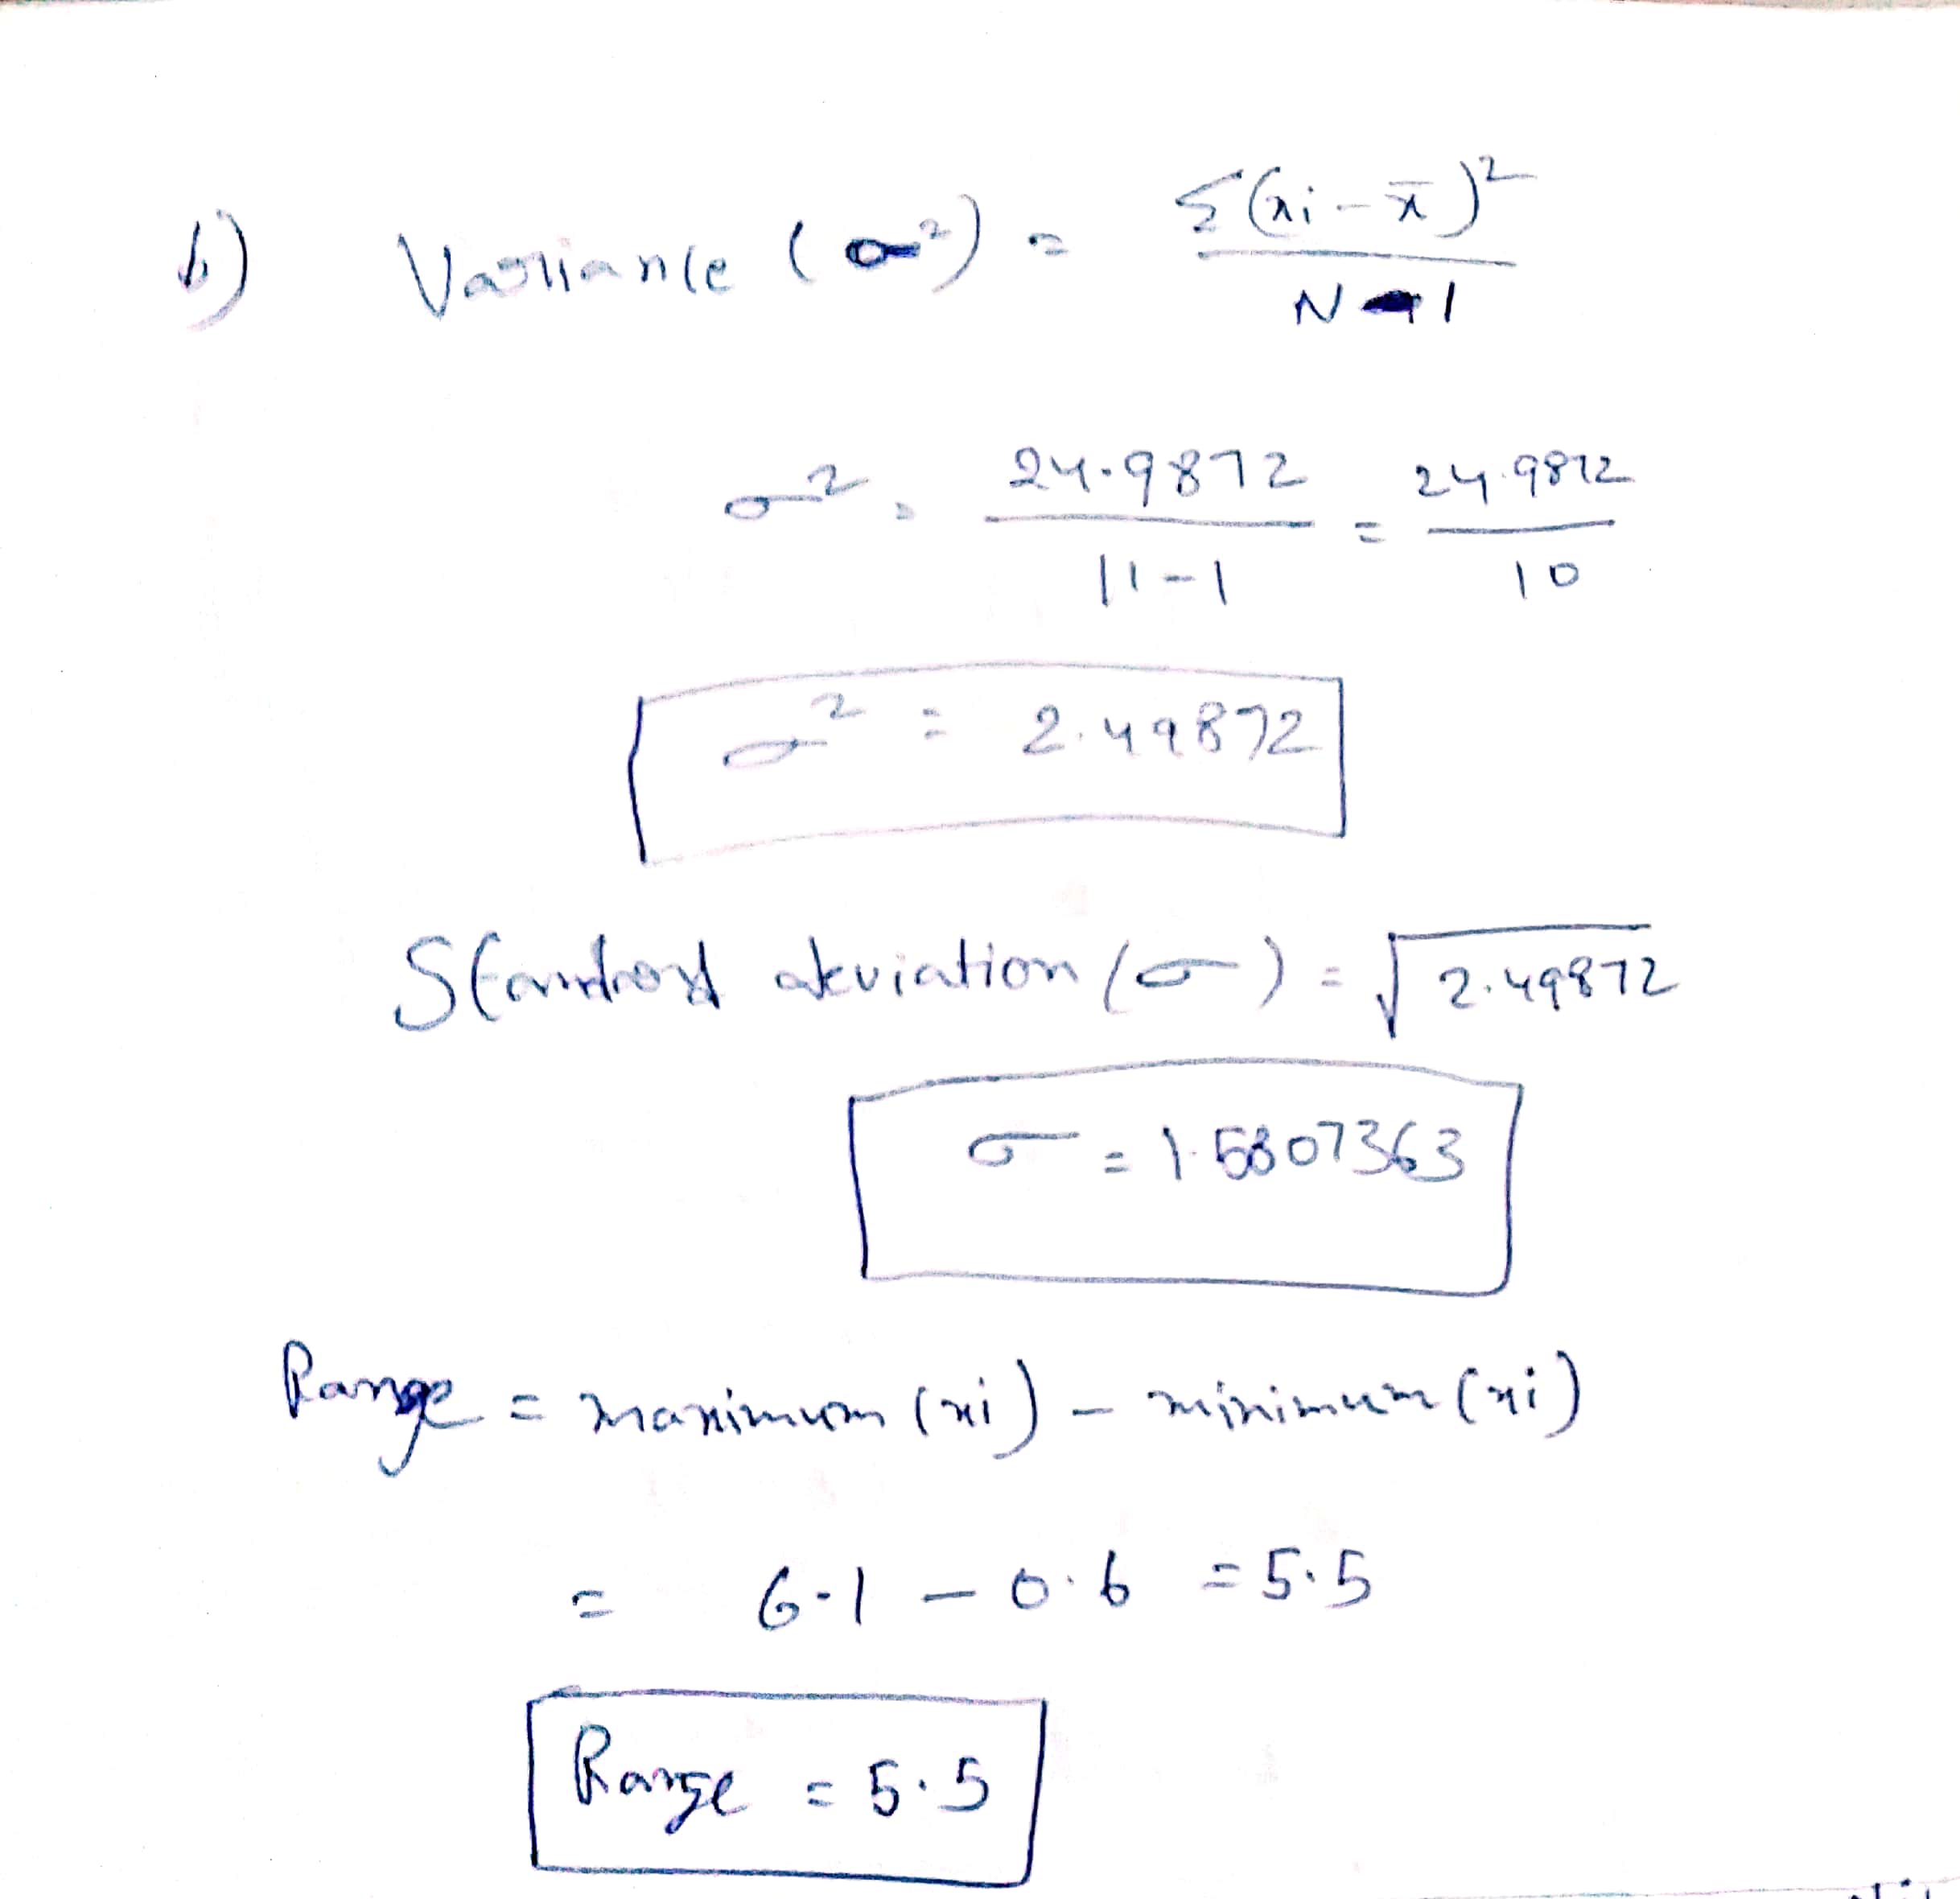 b) Variance (σ²) = Σ(xi - x̄)² / N-1
σ² = 24.9872 / 11-1 = 24.9872 / 10
σ² = 2.49872
Standard deviation (σ) = √2.49872
σ = 1.5807363
Range = maximum (xi) - minimum (xi)
= 6.1 - 0.6 = 5.5
Range = 5.5